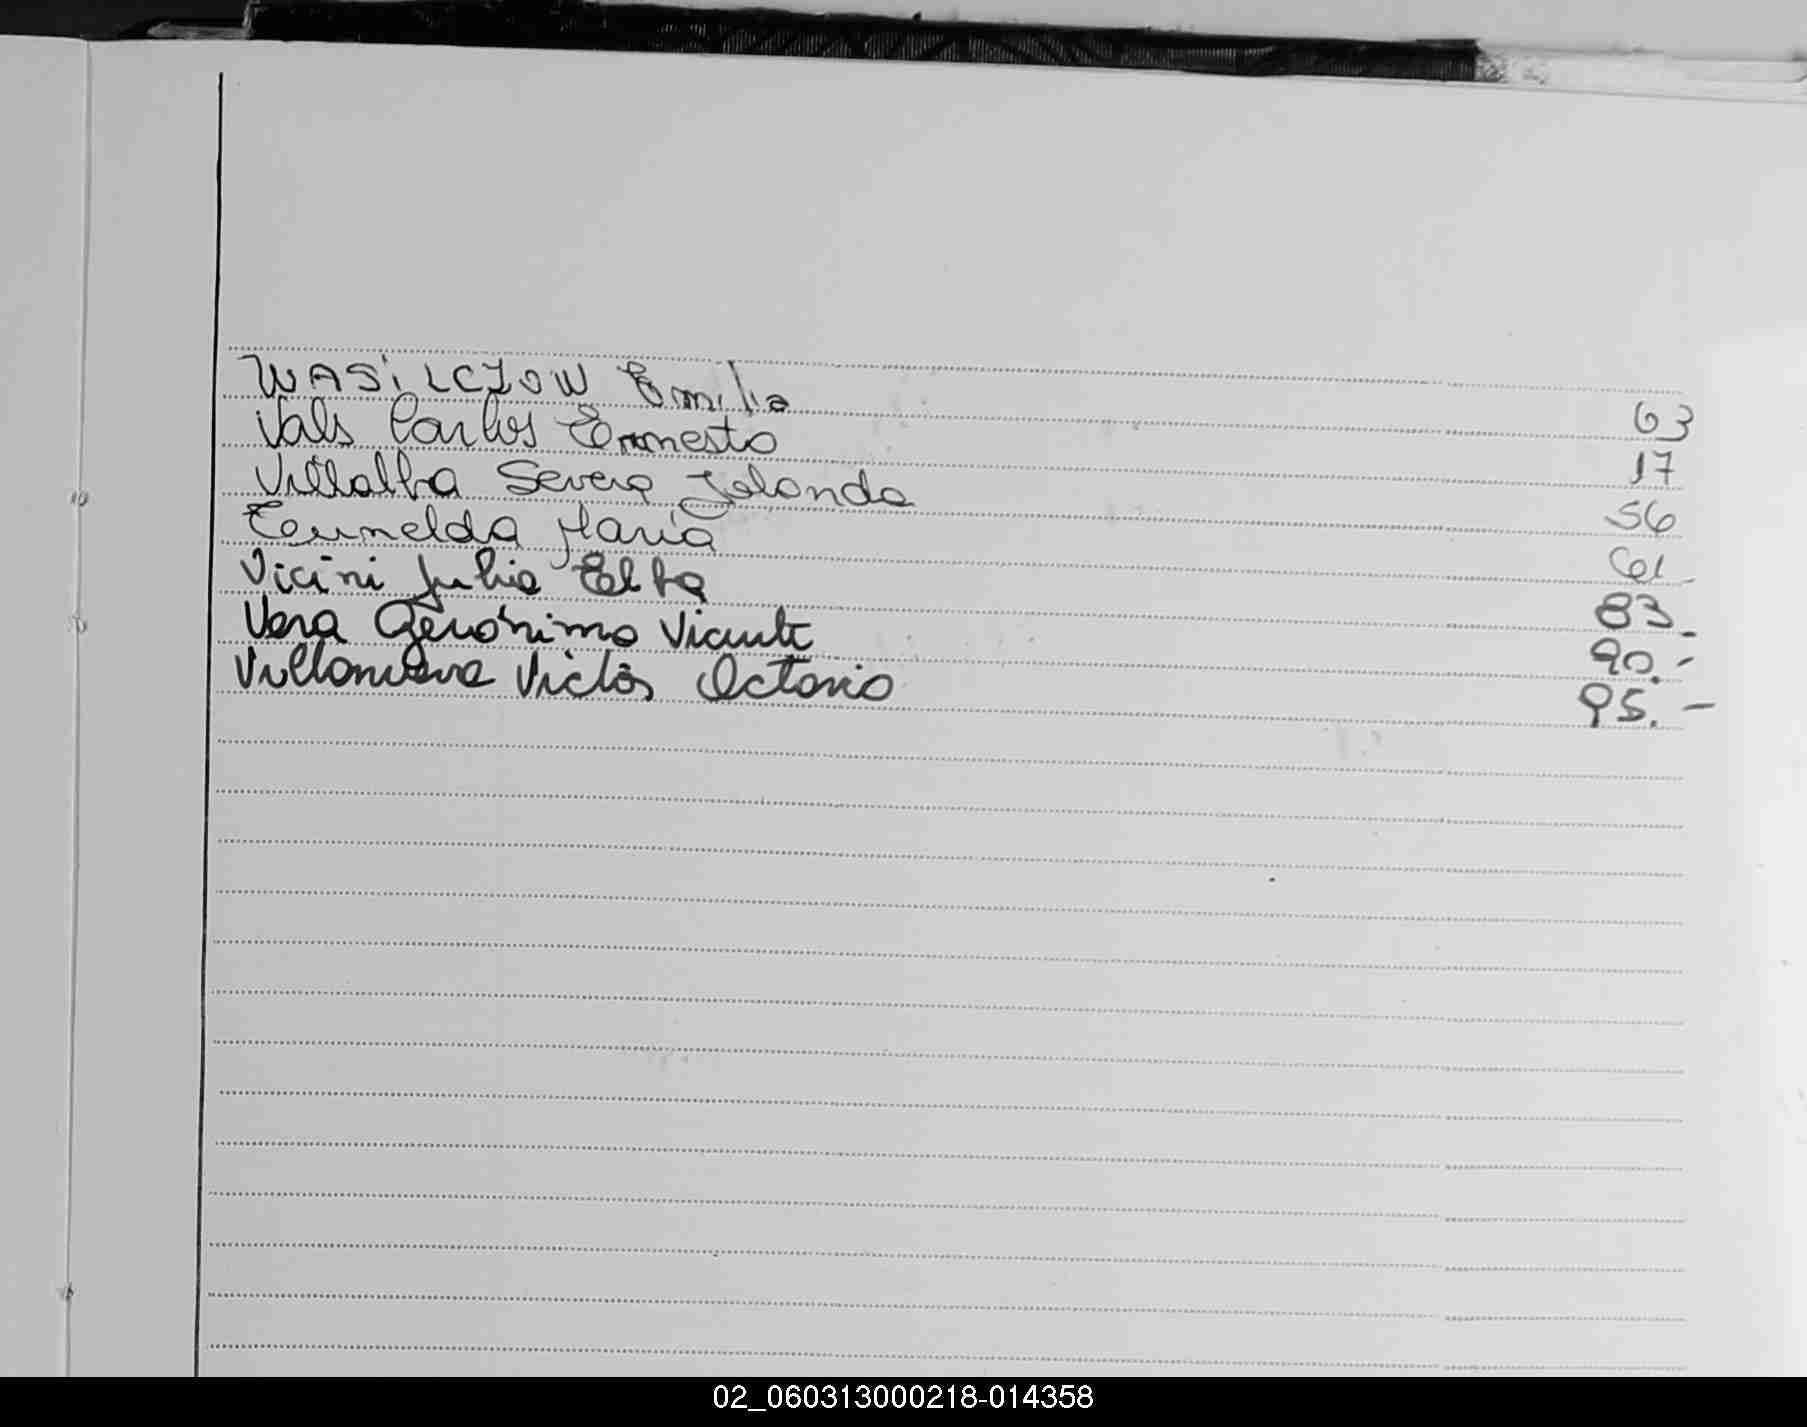 WASILCZOW Emilia 63
Vals Carlos Ernnesto 17
Villalba Severa Jolanda 56
María 61
Vicini Julia Elba 83.
Vera Gerónimo Vicente 90.-
Villanueva Victor Octavio 95.-
02_060313000218-014358